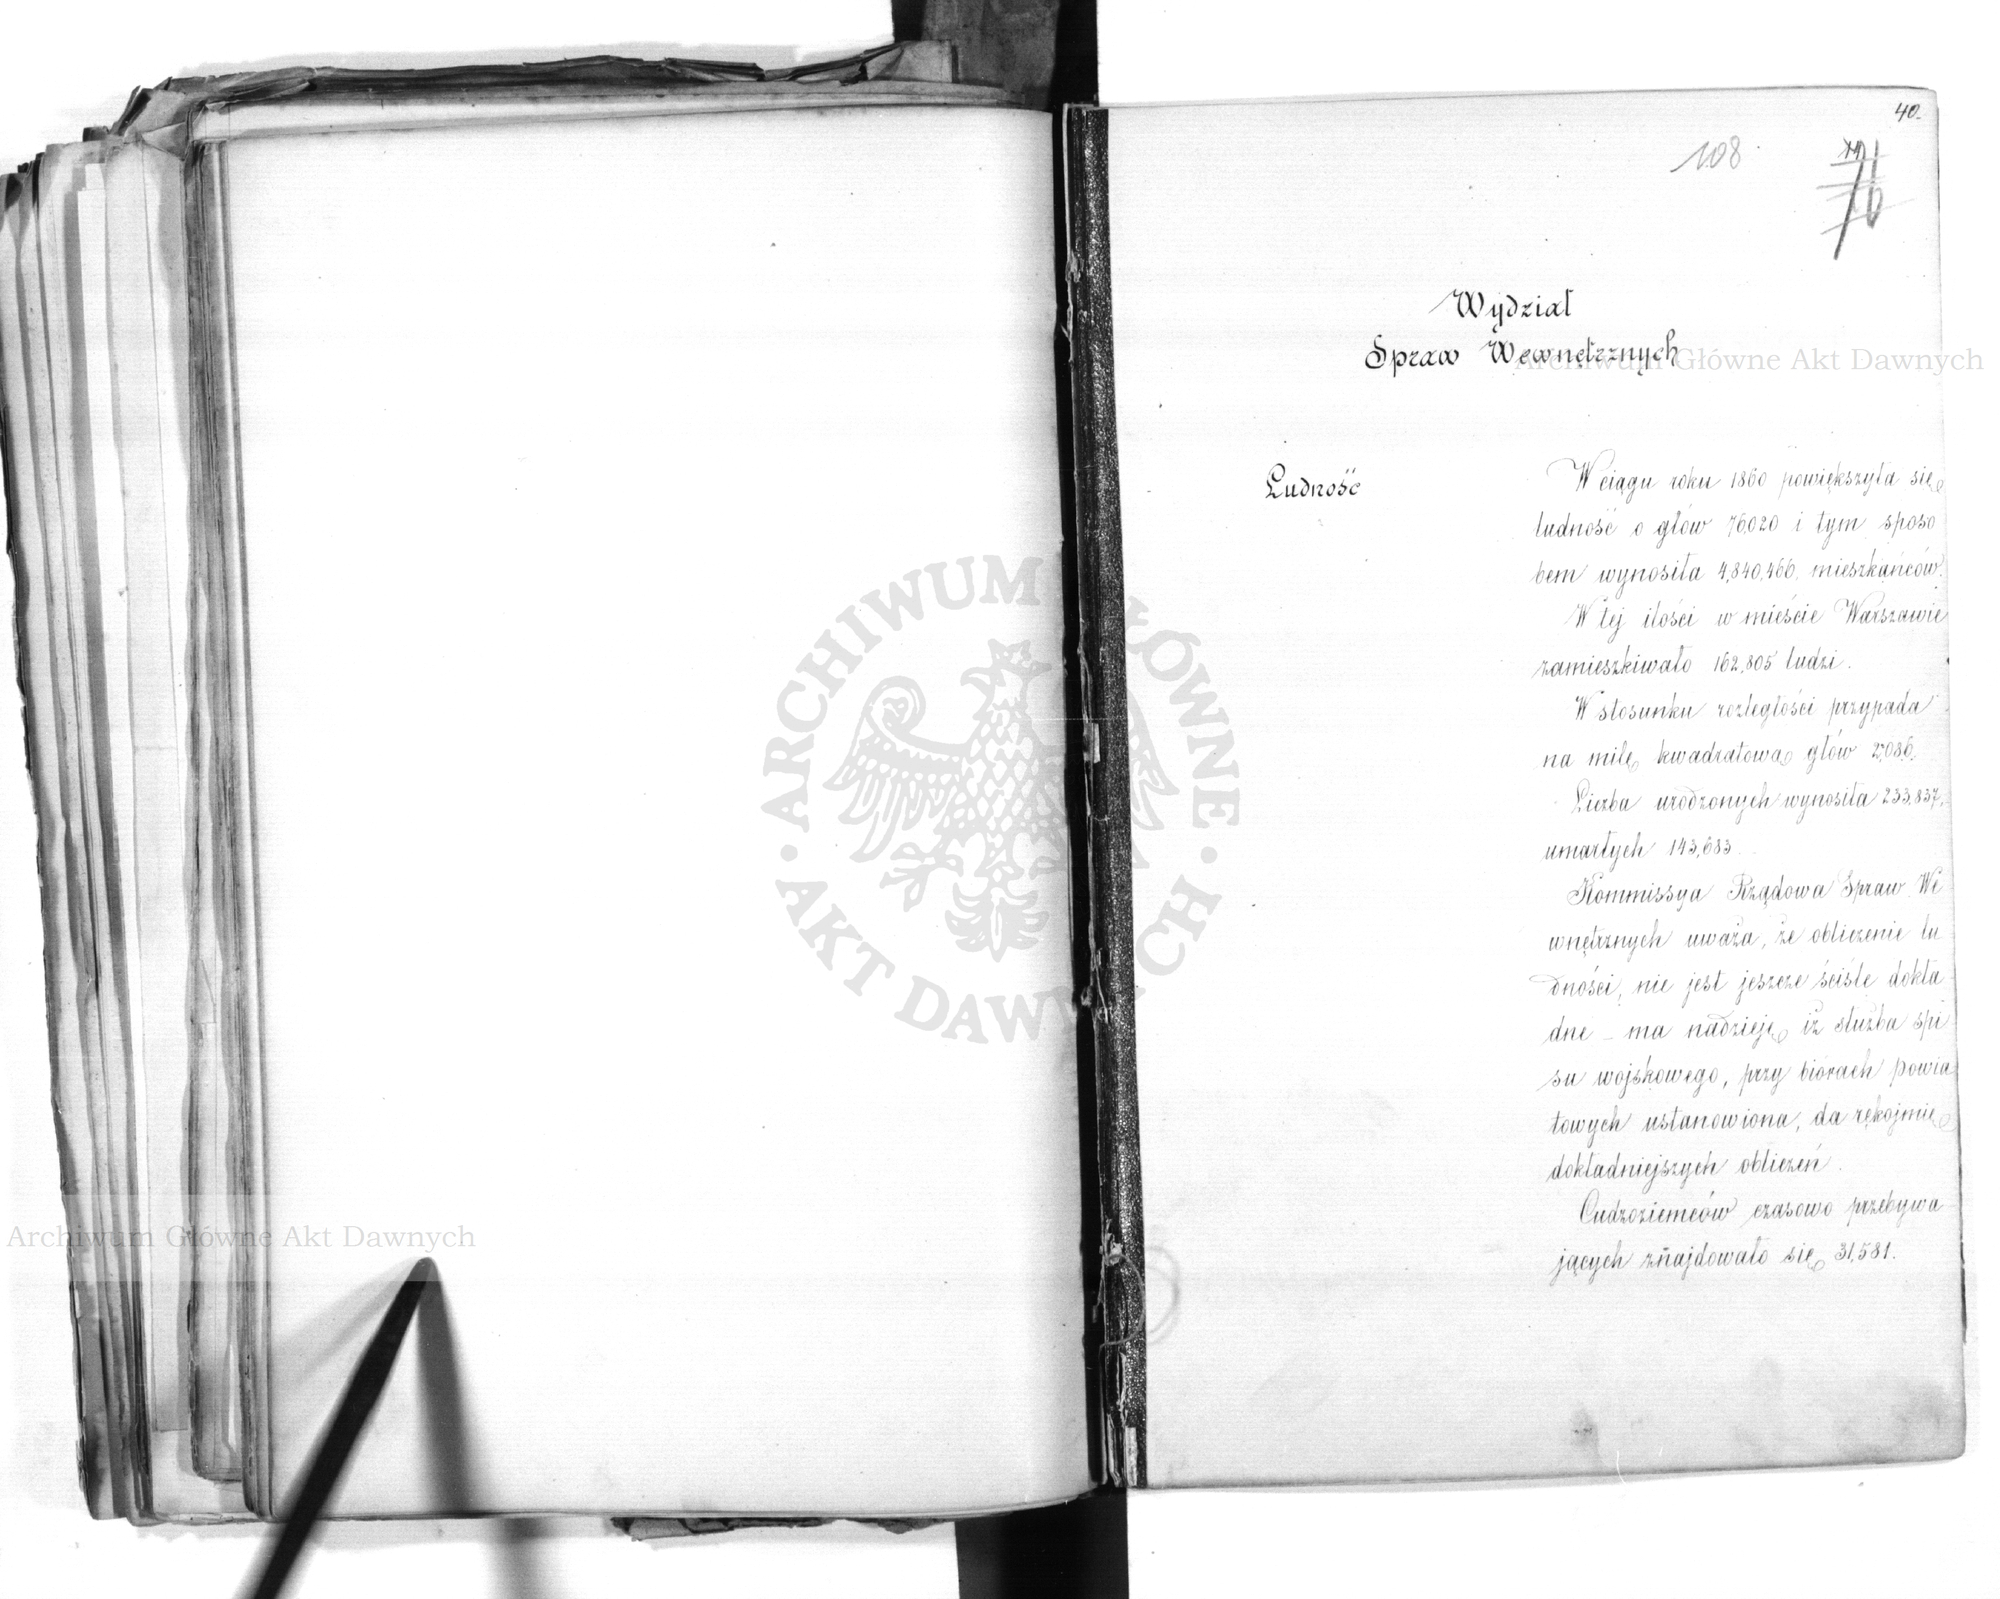 40.
108
76
Wydział
Spraw Wewnętrznych
Archiwum Główne Akt Dawnych
Ludność
W ciągu roku 1860 powiększyła się
ludność o głów 76,020 i tym sposo
bem wynosiła 4,840,466. mieszkańców.
W tej ilości w mieście Warszawie
zamieszkiwało 162,805 ludzi.
W stosunku rozległości przypada
na milę kwadratową głów 2,086.
Liczba urodzonych wynosiła 233,837,
umarłych 143,683.
Kommissya Rządowa Spraw We
wnętrznych uważa, że obliczenie lu
dności, nie jest jeszcze ściśle dokła-
dne – ma nadzieję iż służba spi
su wojskowego, przy biórach powia
towych ustanowiona, da rękojmię
dokładniejszych obliczeń.
Cudzoziemców czasowo przebywa-
jących znajdowało się 31,581.
ARCHIWUM GŁÓWNE
AKT DAWNYCH
Archiwum Główne Akt Dawnych